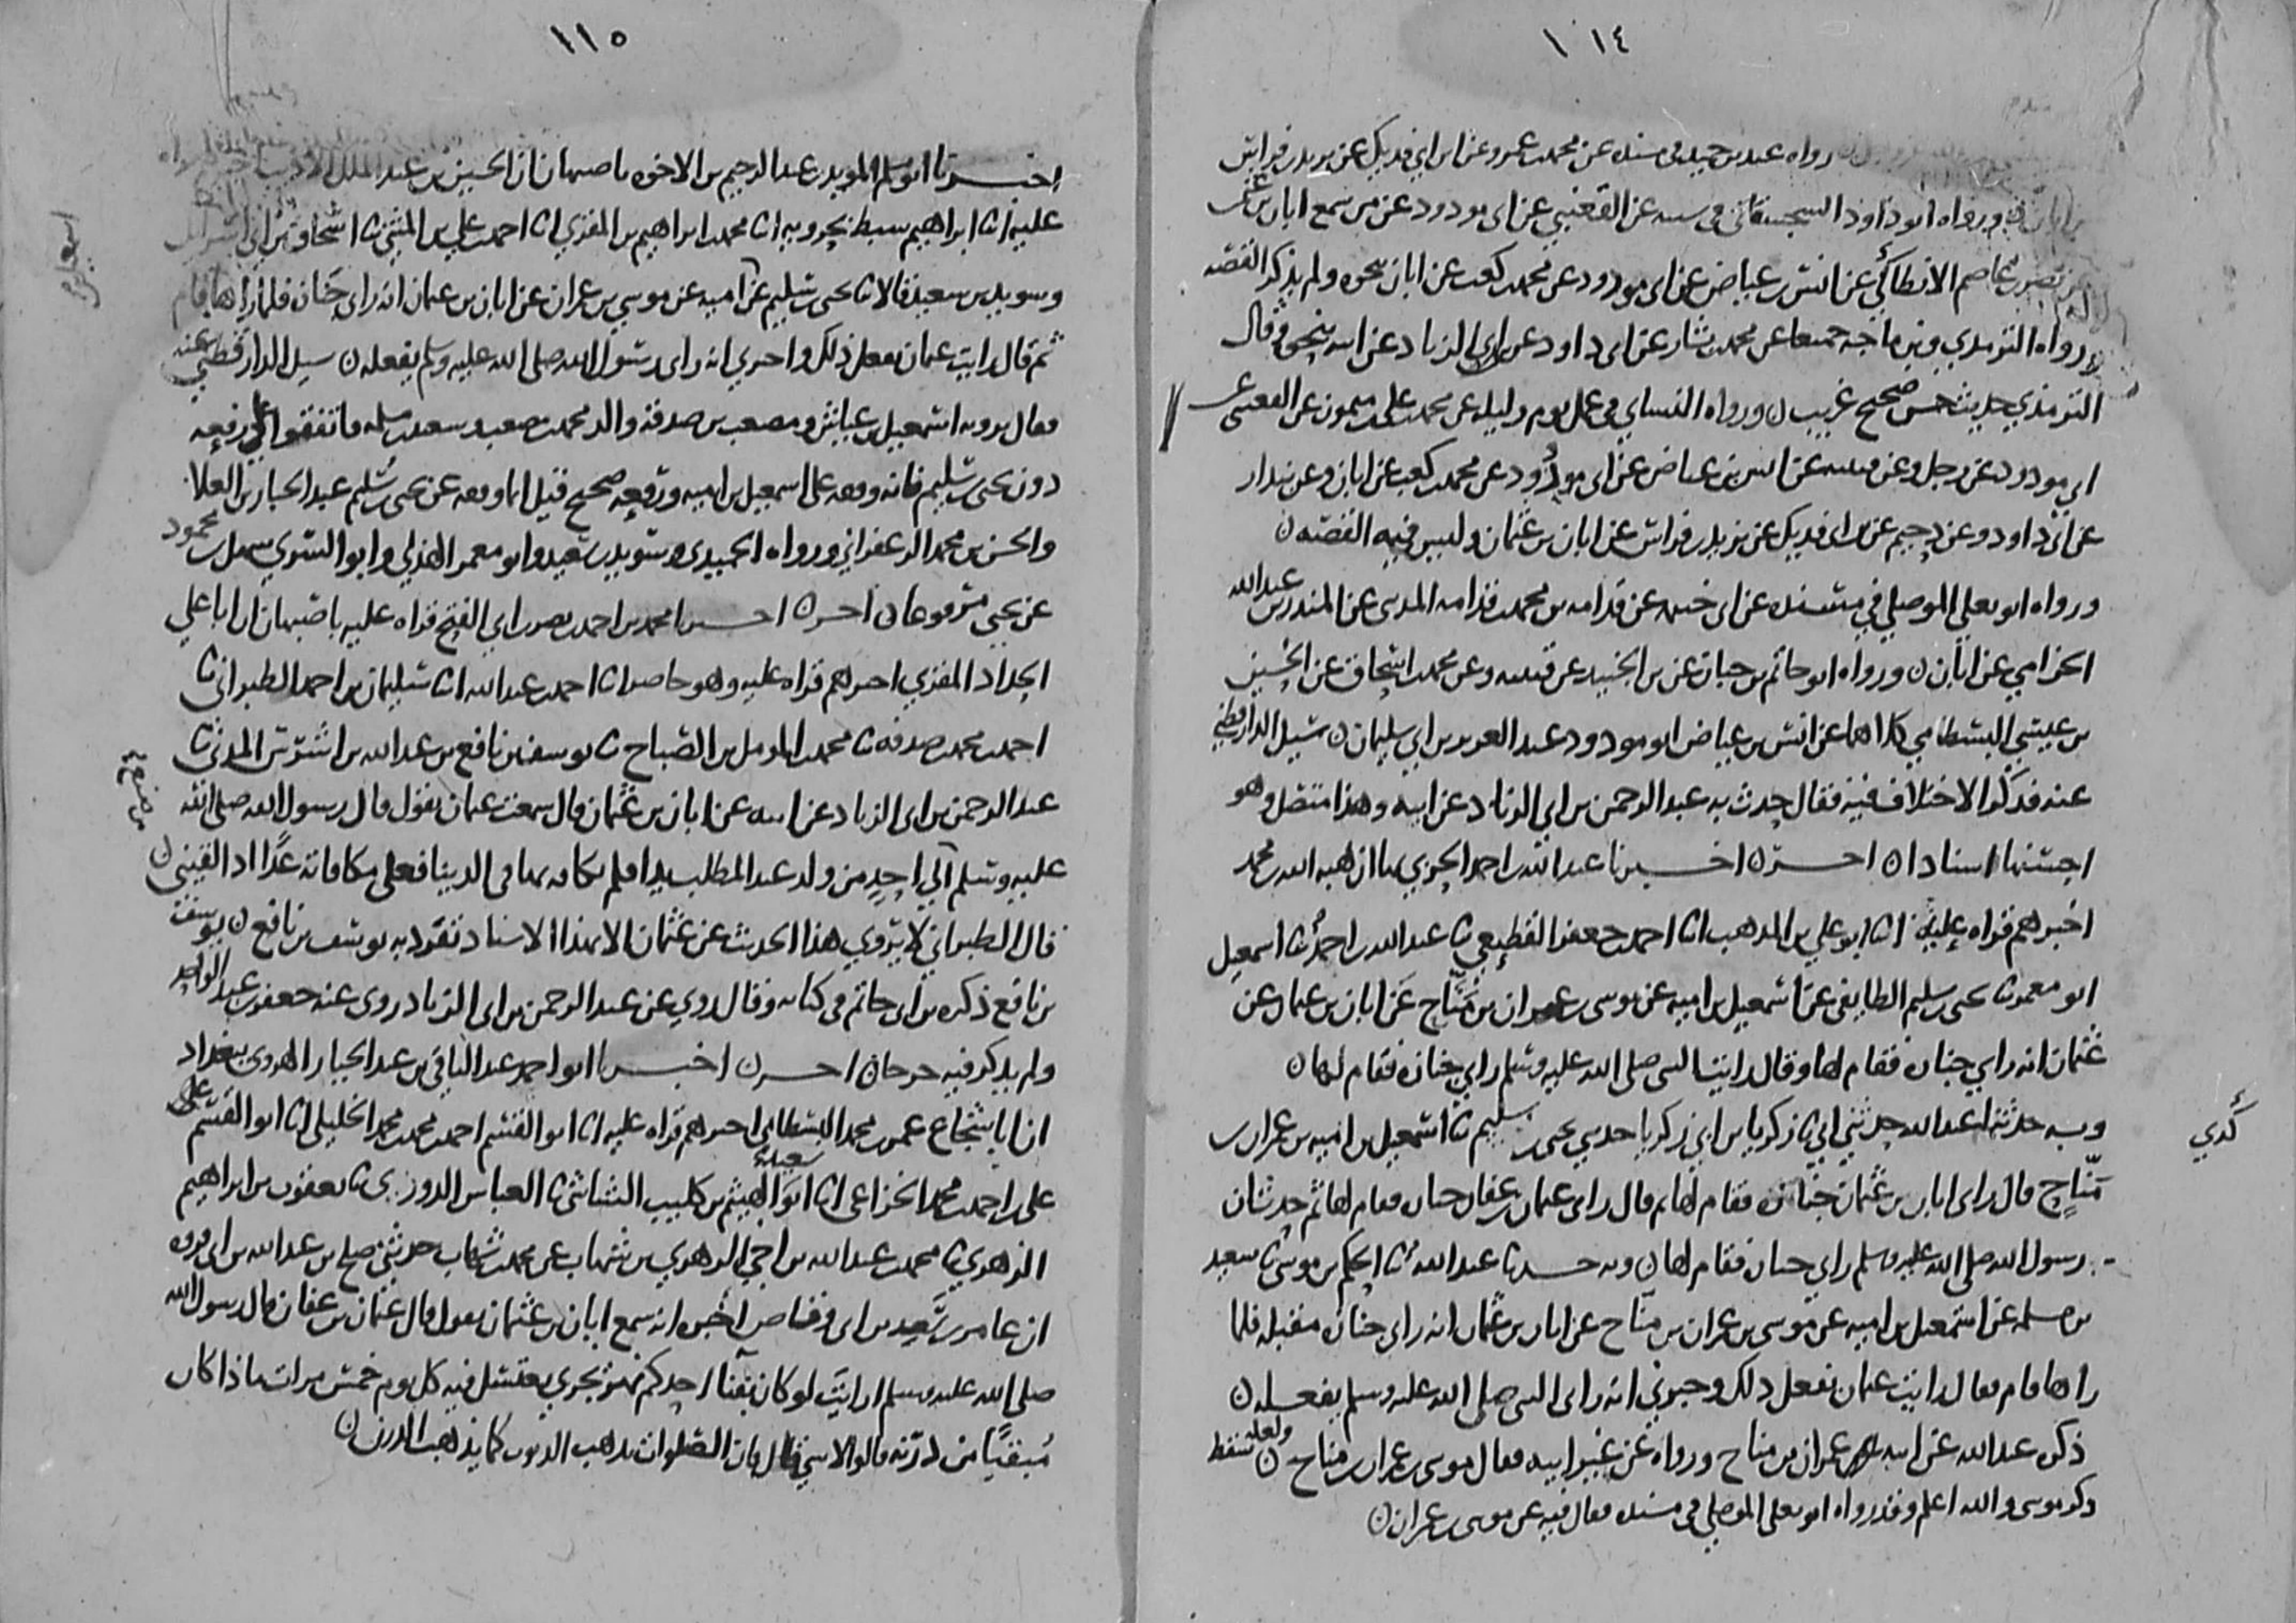 ١١٤
رواه عبد بن حميد في مسنده عن محمد بن عمرو عن ابن ابي فديك عن يزيد بن فراس
بن ابان ورواه ابو داود السجستاني في سننه عن القعنبي عن ابي مودود عن من سمع ابان بن
نصر بن عاصم الانطاكي عن انس بن عياض عن ابي مودود عن محمد بن كعب عن ابان نحوه ولم يذكر القصه
رواه الترمذي وبن ماجه جميعا عن محمد بن بشار عن ابي داود عن بن ابي الزناد عن ابيه بنحوه وقال
الترمذي حديث حسن صحيح غريب ن ورواه النساي في عمل يوم وليله عن محمد بن علي بن ميمون عن القعنبي عن
ابي مودود عن رجل وعن قتيبه عن انس بن عياض عن ابي مودود عن محمد بن كعب عن ابان وعن بندار
عن ابي داود وعن دحيم عن بن ابي فديك عن يزيد بن فراس عن ابان بن عثمان وليس فيه القصه ن
ورواه ابو يعلى الموصلي في مسنده عن ابي خيثمه عن قدامه بن محمد بن قدامه المديني عن المنذر بن عبد الله
الحزامي عن ابان ن ورواه ابو حاتم بن حبان عن بن الجنيد عن قتيبه وعن محمد بن اسحاق عن الحسين
بن عيسى البسطامي كلاهما عن انس بن عياض ابو مودود عبد العزيز بن ابي سليمان ن سيل الدارقطني
عنه فذكر الاختلاف فيه فقال حدث به عبد الرحمن بن ابي الزناد عن ابيه وهذا متصل وهو
احسنها اسنادا ن اخر ن اخبرنا عبد الله بن احمد الحربي بها ان هبه الله بن محمد
اخبرهم قراه عليه انا ابو علي بن المذهب انا احمد بن جعفر القطيعي نا عبد الله بن احمد نا اسمعيل
ابو معمر نا يحيى بن سليم الطايفي عن اسمعيل بن اميه عن موسى بن عمران بن مناح عن ابان بن عثمان عن
عثمان انه راى جنازه فقام لها وقال رايت النبي صلى الله عليه وسلم راى جنازه فقام لها ن
وبه حدثنا عبد الله حدثني ابي نا زكريا بن ابي زكريا حدثني يحيى بن سليم نا اسمعيل بن اميه بن عمران بن
كذي
مناح قال راى ابان بن عثمان جنازه فقام لها ثم قال راى عثمان بن عفان جنازه فقام لها ثم حدث ان
رسول الله صلى الله عليه وسلم راى جنازه فقام لها ن وبه حدثنا عبد الله نا الحكم بن موسى نا سعيد
بن مسلمه عن اسمعيل بن اميه عن موسى بن عمران بن مناح عن ابان بن عثمان انه راى جنازه مقبله فلما
راها قام فقال رايت عثمان يفعل ذلك وخبرني انه راى النبي صلى الله عليه وسلم يفعله ن
ذكره عبد الله عن ابيه عمران بن مناح ورواه عن غير ابيه فقال موسى بن عمران بن مناح ن ولعله سقط
ذكر موسى والله اعلم وقد رواه ابو يعلى الموصلي في مسنده فقال فيه عن موسى بن عمران ن
١١٥
اخبرنا ابو مسلم المويد بن عبد الرحيم بن الاخوه باصبهان ان الحسين بن عبد الملك الاديب
عليه انا ابراهيم سبط بحرويه انا محمد بن ابراهيم بن المقري انا احمد بن علي بن المثنى نا اسحاق بن ابي اسرائيل
وسويد بن سعيد قالا نا يحيى بن سليم عن اميه عن موسى بن عمران عن ابان بن عثمان انه راى جنازه فلما راها قام
ثم قال رايت عثمان يفعل ذلك واخبرني انه راى رسول الله صلى الله عليه وسلم يفعله ن سيل الدارقطني عنه
فقال يرويه اسمعيل بن عياش ومصعب بن صدقه والد محمد بن مصعب وسعيد بن مسلمه فاتفقوا على رفعه
دون يحيى بن سليم فانه وقفه على اسمعيل بن اميه ورفعه صحيح قيل انما وقفه عن يحيى بن سليم عبد الجبار بن العلا
والحسن بن محمد الزعفراني ورواه الحميدي وسويد بن سعيد وابو معمر الهذلي وابو السري سهل بن محمود
عن يحيى مرفوعا ن اخر ن اخبرنا محمد بن احمد بن نصر بن ابي الفتح قراه عليه باصبهان ان ابا علي
الحداد المقري اخبرهم قراه عليه وهو حاضر انا احمد بن عبد الله انا سليمان بن احمد الطبراني نا
احمد بن محمد بن صدقه نا محمد بن المومل بن الصباح نا يوسف بن نافع بن عبد الله بن اشرس المدني نا
عبد الرحمن بن ابي الزناد عن ابيه عن ابان بن عثمان قال سمعت عثمان يقول قال رسول الله صلى الله
عليه وسلم الي احد من ولد عبد المطلب يدا فلم يكافه بها في الدنيا فعلي مكافاته غدا اذا لقيني ن
قال الطبراني لا يروي هذا الحديث عن عثمان الا بهذا الاسناد تفرد به يوسف بن نافع ن يوسف
بن نافع ذكره بن ابي حاتم في كتابه وقال روى عن عبد الرحمن بن ابي الزناد روى عنه جعفر بن عبد الواحد
ولم يذكر فيه جرحا ن اخر ن اخبرنا ابو احمد عبد الباقي بن عبد الجبار الهروي ببغداد
ان ابا شجاع عمر بن محمد البسطامي اخبرهم قراه عليه انا ابو القسم احمد بن محمد بن محمد الخليلي انا ابو القسم علي
بن احمد بن محمد الخزاعي انا ابو سعيد الهيثم بن كليب الشاشي نا العباس الدوري نا يعقوب بن ابراهيم
الزهري نا محمد بن عبد الله بن اخي الزهري بن شهاب عن محمد بن شهاب حدثني صلح بن عبد الله بن ابي فروه
ان عامر بن سعد بن ابي وقاص اخبره انه سمع ابان بن عثمان يقول قال عثمان بن عفان قال رسول الله
صلى الله عليه وسلم ارايت لو كان بفنا احدكم نهر يجري يغتسل فيه كل يوم خمس مرات ماذا كان
مبقيا من درنه قالوا لا شي قال فان الصلوات تذهب الذنوب كما يذهب الدرن ن